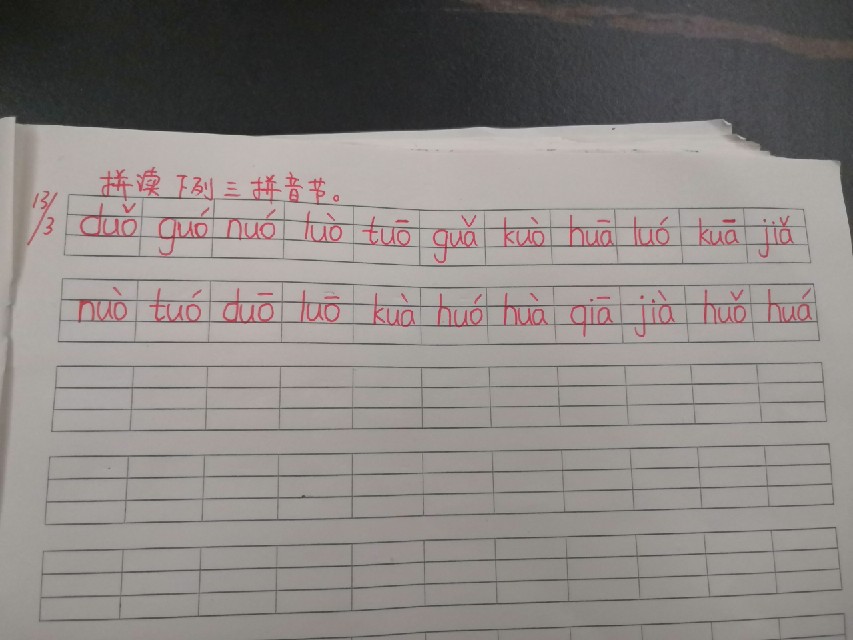 拼读下列三拼音节。
13/3
duǒ guó nuó luò tuō guǎ kuò huā luó kuā jiǎ
nuò tuó duō luō kuà huó huà qiā jià huǒ huá